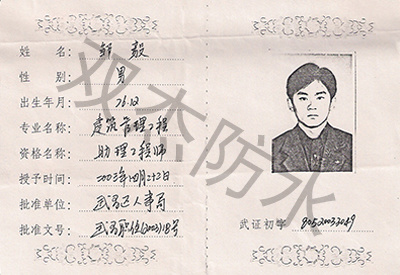 姓名： 邹毅
性别： 男
出生年月： 76.12
专业名称： 建筑管理工程
资格名称： 助理工程师
授予时间： 二00三年四月二十三日
批准单位： 武昌区人事局
批准文号： 武昌职位(2003)18号
武证初字 8052003049
双杰防水